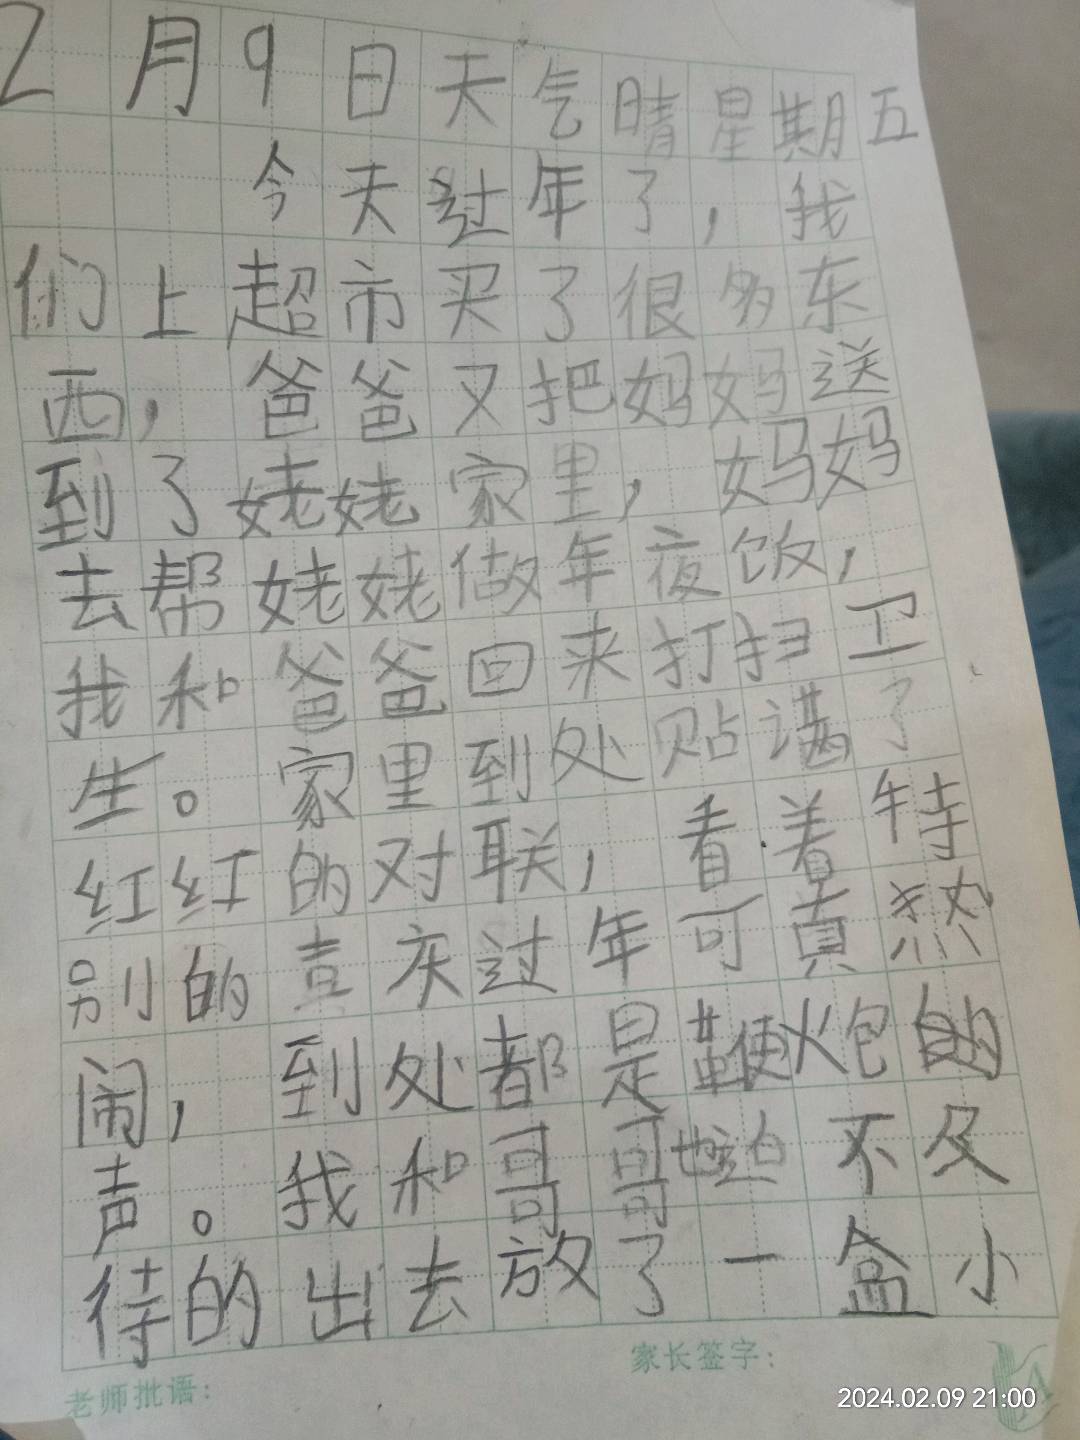 2月9日天气晴星期五
今天过年了，我
们上超市买了很多东
西，爸爸又把妈妈送
到了姥姥家里，妈妈
去帮姥姥做年夜饭，
我和爸爸回来打扫卫
生。家里到处贴满了
红红的对联，看着特
别的喜庆过年可真热
闹，到处都是鞭炮的
声。我和哥哥也迫不及
待的出去放了一盒小
家长签字：
老师批语：
2024.02.09 21:00